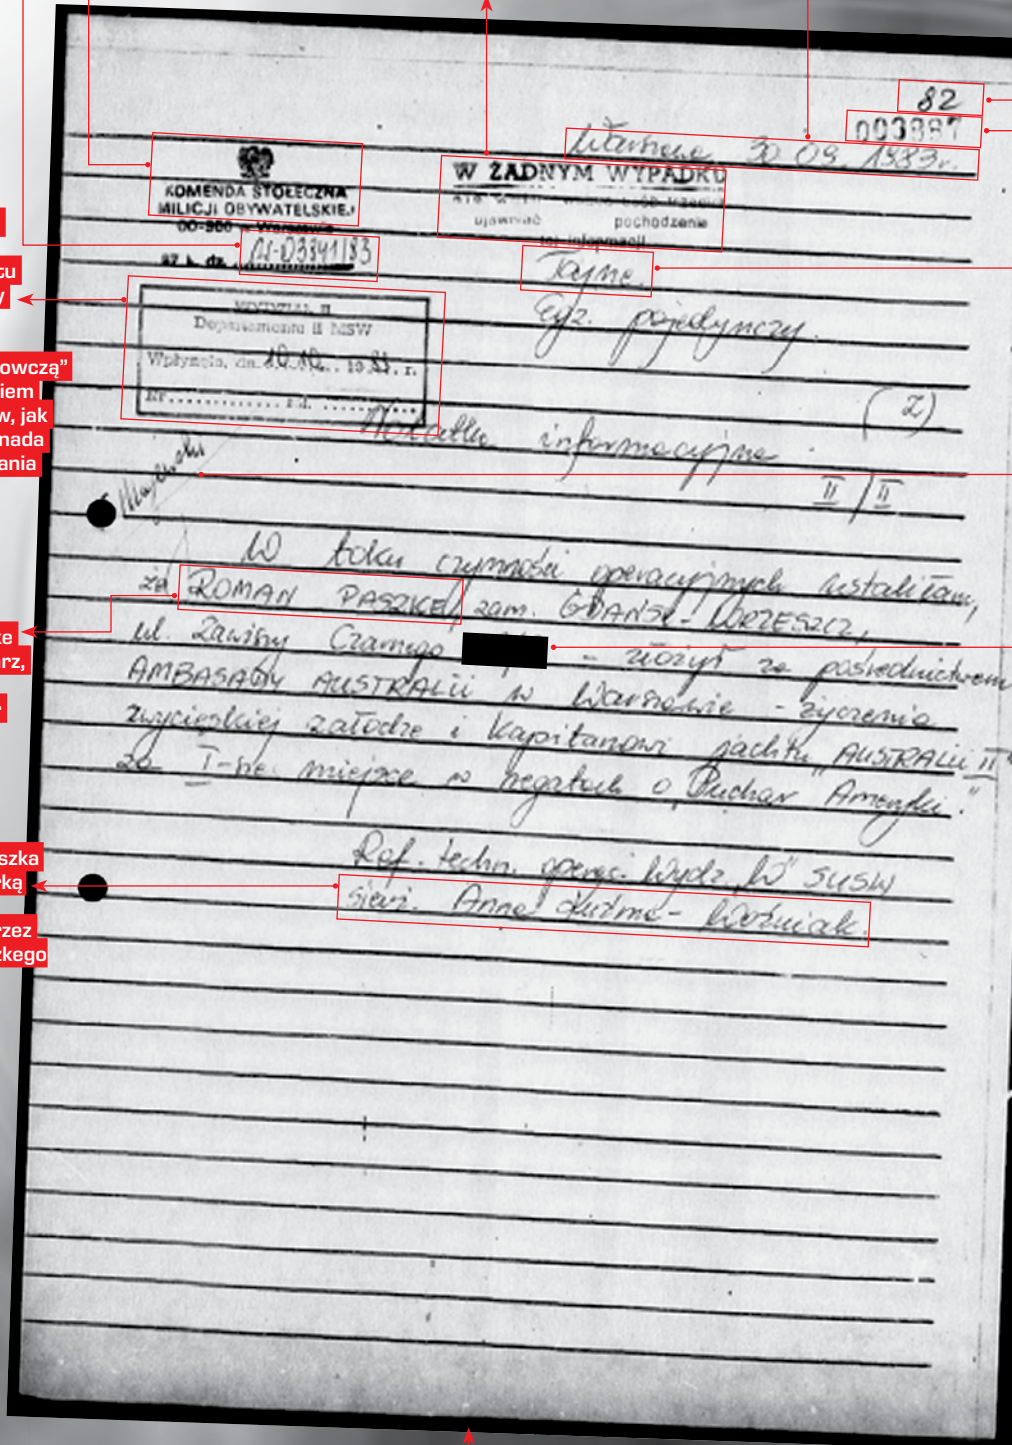 82
003887
Warszawa 30.09.1983r.
KOMENDA STOŁECZNA
MILICJI OBYWATELSKIEJ
00-950 w Warszawie
W ŻADNYM WYPADKU
nie wolno osób trzecich
ujawniać pochodzenie
tej informacji
L. dz. 03841/83
Tajne.
Egz. pojedynczy.
WYDZIAŁ II
Departamentu II MSW
Wpłynęło, dn. 10.10. 1983. r.
Nr
Notatka informacyjna
Majewski
II/II
W toku czynności operacyjnych ustaliłam,
że ROMAN PASZKE/ zam. GDAŃSK-WRZESZCZ,
ul. Zawiszy Czarnego - złożył za pośrednictwem
AMBASADY AUSTRALII w Warszawie - życzenia
zwycięskiej załodze i kapitanowi jachtu „AUSTRALII II”
za I-sze miejsce w regatach o „Puchar Ameryki”.
Ref. techn. operac. Wydz. „W” SUSW
sierż. Anna Woźniak.
tu
owczą”
iem
w, jak
nada
ania
ke
rz,
szka
rką
rzez
zkego